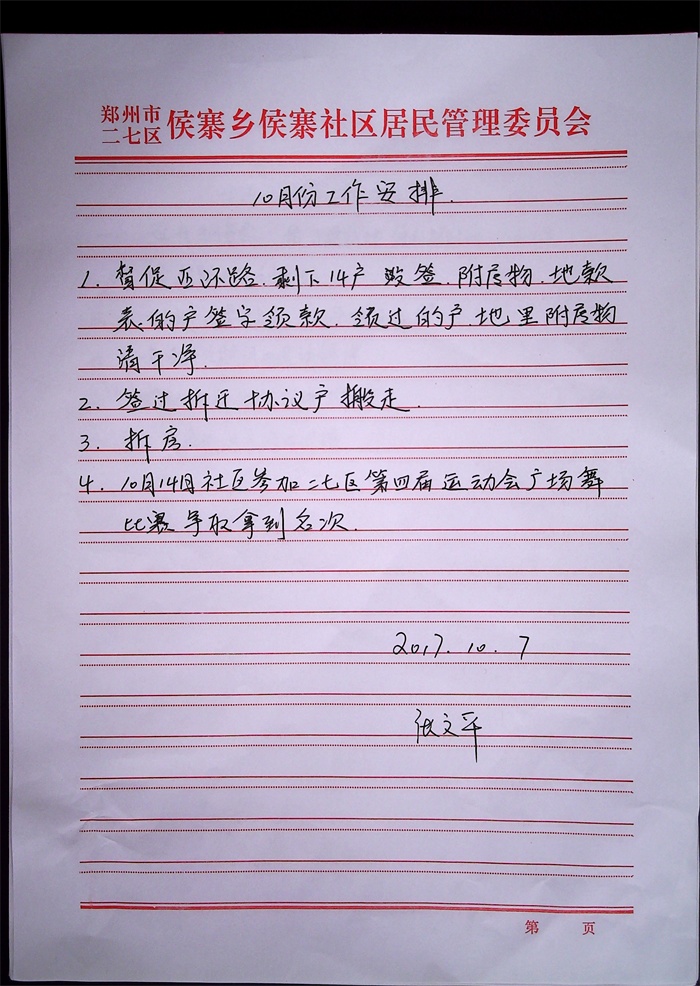 郑州市
二七区 侯寨乡侯寨社区居民管理委员会
10月份工作安排.
1. 督促四环路.剩下14户 签.附属物.地款
表的户签字领款.领过的户.地里附属物
清干净.
2. 签过拆迁协议户搬走.
3. 拆房.
4. 10月14月社区参加二七区第四届运动会广场舞
比赛争取拿到名次.
2017.10.7
张文平
第 页